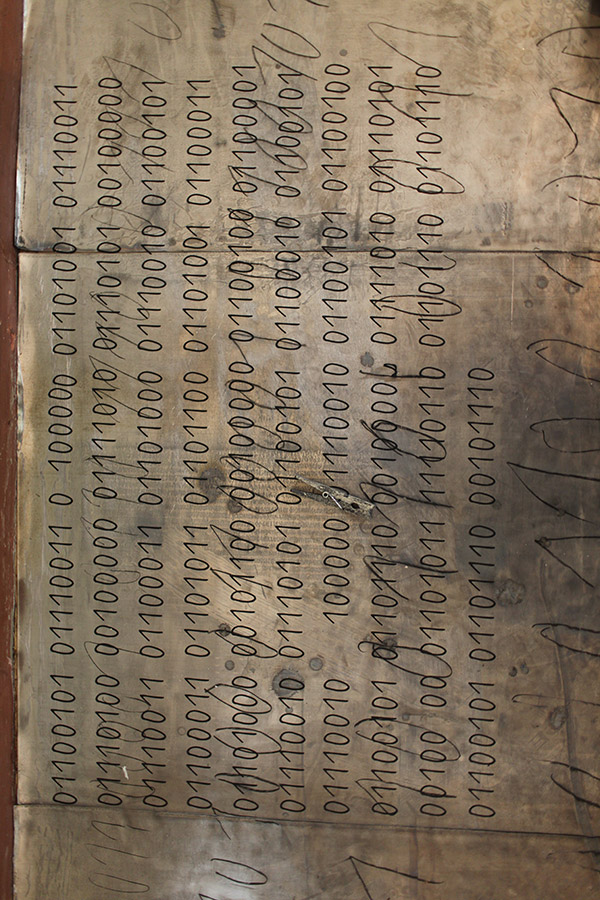 01100101 01110011 0 100000 01101001 01110011
01110100 00100000 01111010 01110101 00100000
01110011 01100011 01101000 01110010 01100101
01100011 01101011 01101100 01101001 01100011
01101000 00101100 00100000 01100100 01100001
01110010 01110101 01100101 01100010 01100101
01110010 100000 01110010 01100101 01100100
01100101 01101110 00100000 01111010 01110101
00100 00 01101011 11110110 01101110 01101110
01100101 01101110 00101110